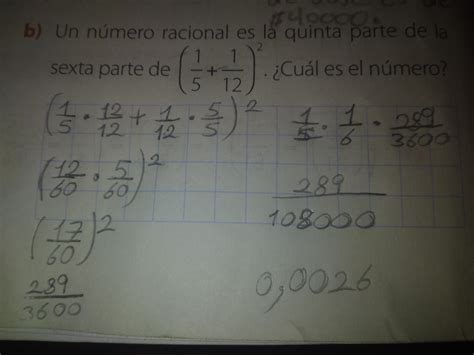 $40000.
b) Un número racional es la quinta parte de la
sexta parte de (1/5 + 1/12)². ¿Cuál es el número?
(1/5 · 12/12 + 1/12 · 5/5)²
(12/60 · 5/60)²
(17/60)²
289/3600
1/5 · 1/6 · 289/3600
289/108000
0,0026